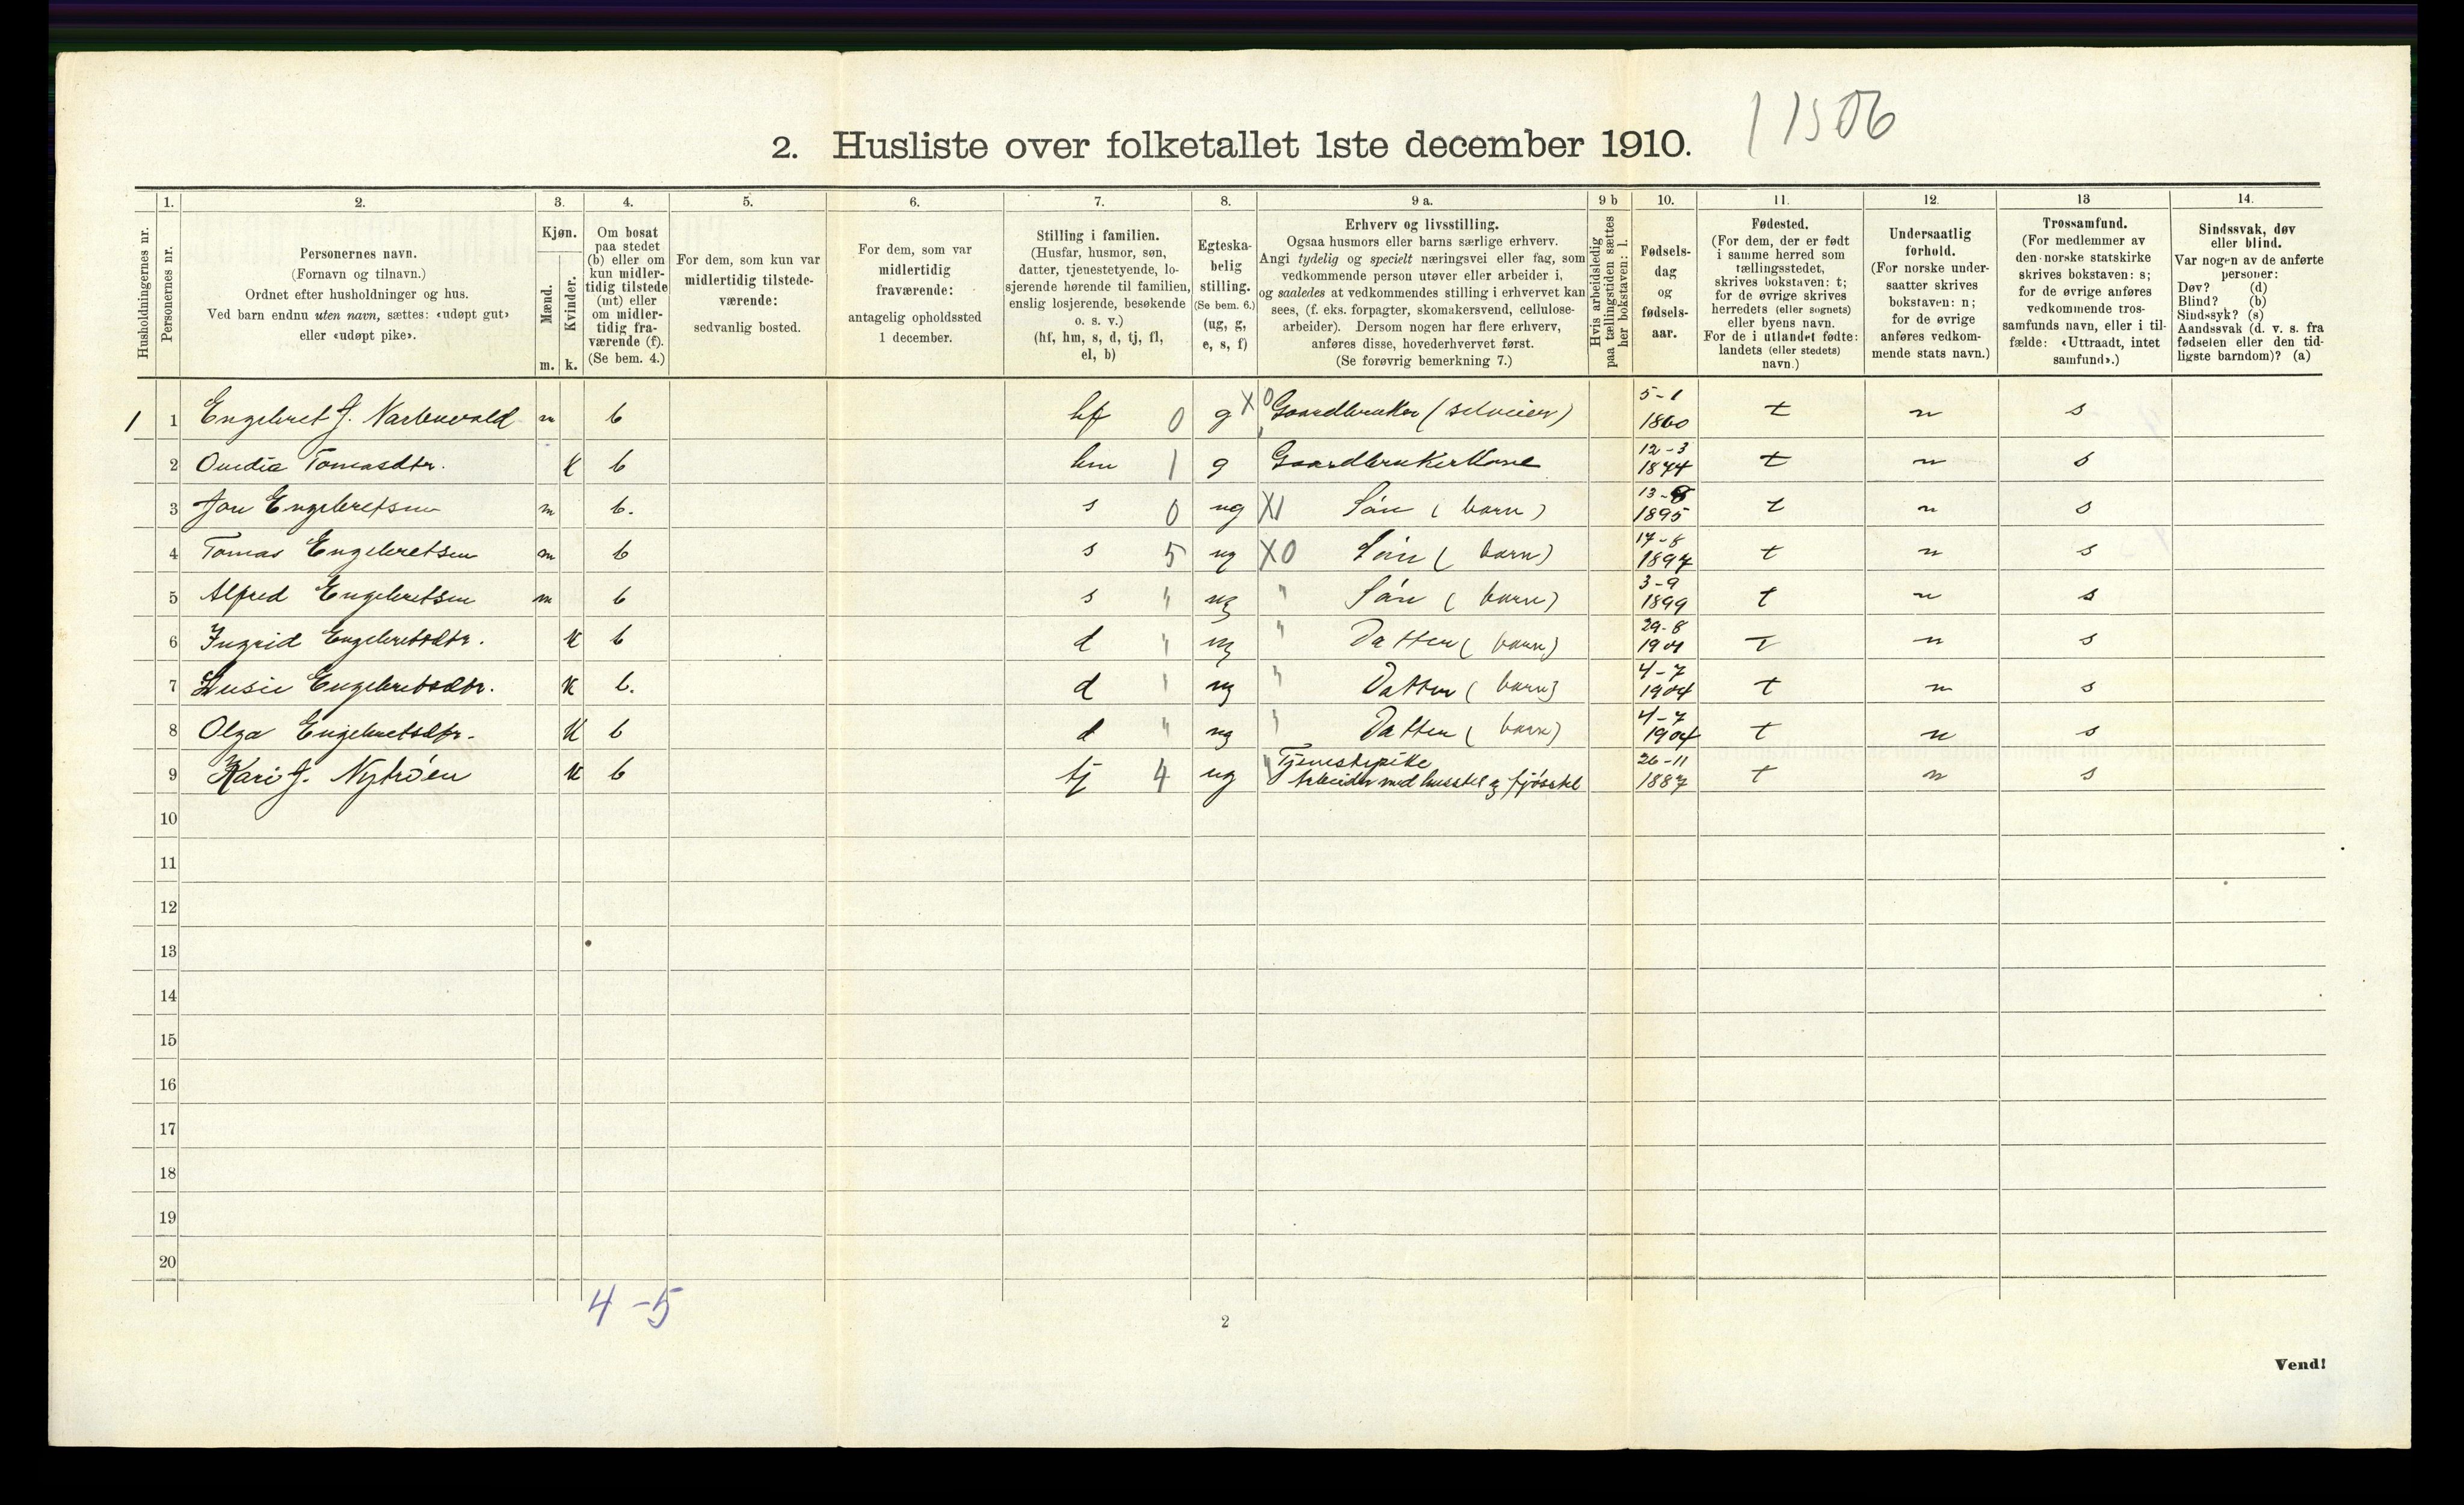 11506
2. Husliste over folketallet 1ste december 1910.
Husholdningernes nr.
1.
Personernes nr.
2.
Personernes navn.
(Fornavn og tilnavn.)
Ordnet efter husholdninger og hus.
Ved barn endnu uten navn, sættes: «udøpt gut»
eller «udøpt pike».
3.
Kjøn.
Mænd.
Kvinder.
m. k.
4.
Om bosat
paa stedet
(b) eller om
kun midler-
tidig tilstede
(mt) eller
om midler-
tidig fra-
værende (f).
(Se bem. 4.)
5.
For dem, som kun var
midlertidig tilstede-
værende:
sedvanlig bosted.
6.
For dem, som var
midlertidig
fraværende:
antagelig opholdssted
1 december.
7.
Stilling i familien.
(Husfar, husmor, søn,
datter, tjenestetyende, lo-
sjerende hørende til familien,
enslig losjerende, besøkende
o. s. v.)
(hf, hm, s, d, tj, fl,
el, b)
8.
Egteska-
belig
stilling.
(Se bem. 6.)
(ug, g,
e, s, f)
9 a.
Erhverv og livsstilling.
Ogsaa husmors eller barns særlige erhverv.
Angi tydelig og specielt næringsvei eller fag, som
vedkommende person utøver eller arbeider i,
og saaledes at vedkommendes stilling i erhvervet kan
sees, (f. eks. forpagter, skomakersvend, cellulose-
arbeider). Dersom nogen har flere erhverv,
anføres disse, hovederhvervet først.
(Se forøvrig bemerkning 7.)
9 b
Hvis arbeidsledig
paa tællingstiden sættes
her bokstaven: l.
10.
Fødsels-
dag
og
fødsels-
aar.
11.
Fødested.
(For dem, der er født
i samme herred som
tællingsstedet,
skrives bokstaven: t;
for de øvrige skrives
herredets (eller sognets)
eller byens navn.
For de i utlandet fødte:
landets (eller stedets)
navn.)
12.
Undersaatlig
forhold.
(For norske under-
saatter skrives
bokstaven: n;
for de øvrige
anføres vedkom-
mende stats navn.)
13
Trossamfund.
(For medlemmer av
den norske statskirke
skrives bokstaven: s;
for de øvrige anføres
vedkommende tros-
samfunds navn, eller i til-
fælde: «Uttraadt, intet
samfund».)
14.
Sindssvak, døv
eller blind.
Var nogen av de anførte
personer:
Døv? (d)
Blind? (b)
Sindssyk? (s)
Aandssvak (d. v. s. fra
fødselen eller den tid-
ligste barndom)? (a)
1 1 Engebret J. m b hf 0 g X 0 Gaardbruker (selveier) 5-1 1860 t n s
2 Ovedia Tomasdtr. K b hm 1 g Gaardbrukerkone 12-3 t n s
3 Jon Engebretsen m b. s 0 ug X1 Sön (barn) 13-8 1895 t n s
4 Tomas Engebretsen m b s 5 ug X0 Sön (barn) 17-8 1897 t n s
5 Alfred Engebretsen m b s " ug " Sön (barn) 3-9 1899 t n s
6 Ingrid Engebretsdtr. K b d " ug " Datter (barn) 29-8 1901 t n s
7 Lusie Engebretsdtr. K b. d " ug " Datter (barn) 4-7 1904 t n s
8 Olga Engebretsdtr. K b d " ug " Datter (barn) 4-7 1904 t n s
9 Kari J. Nytröen K b tj 4 ug " Tjenestepike
Arbeider med husstel og fjösstel 26-11 1887 t n s
10
11
12
13
14
15
16
17
18
19
20
4-5
2
Vend!